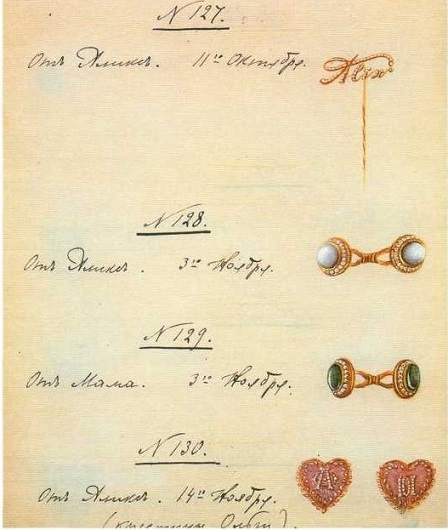 N 127.
Отъ Аликсъ. 11го Октября.
Alix
N 128.
Отъ Аликсъ. 3го Ноября.
N 129.
Отъ Мама. 3го Ноября.
N 130.
Отъ Аликсъ. 14го Ноября.
A H
(крестины Ольги).